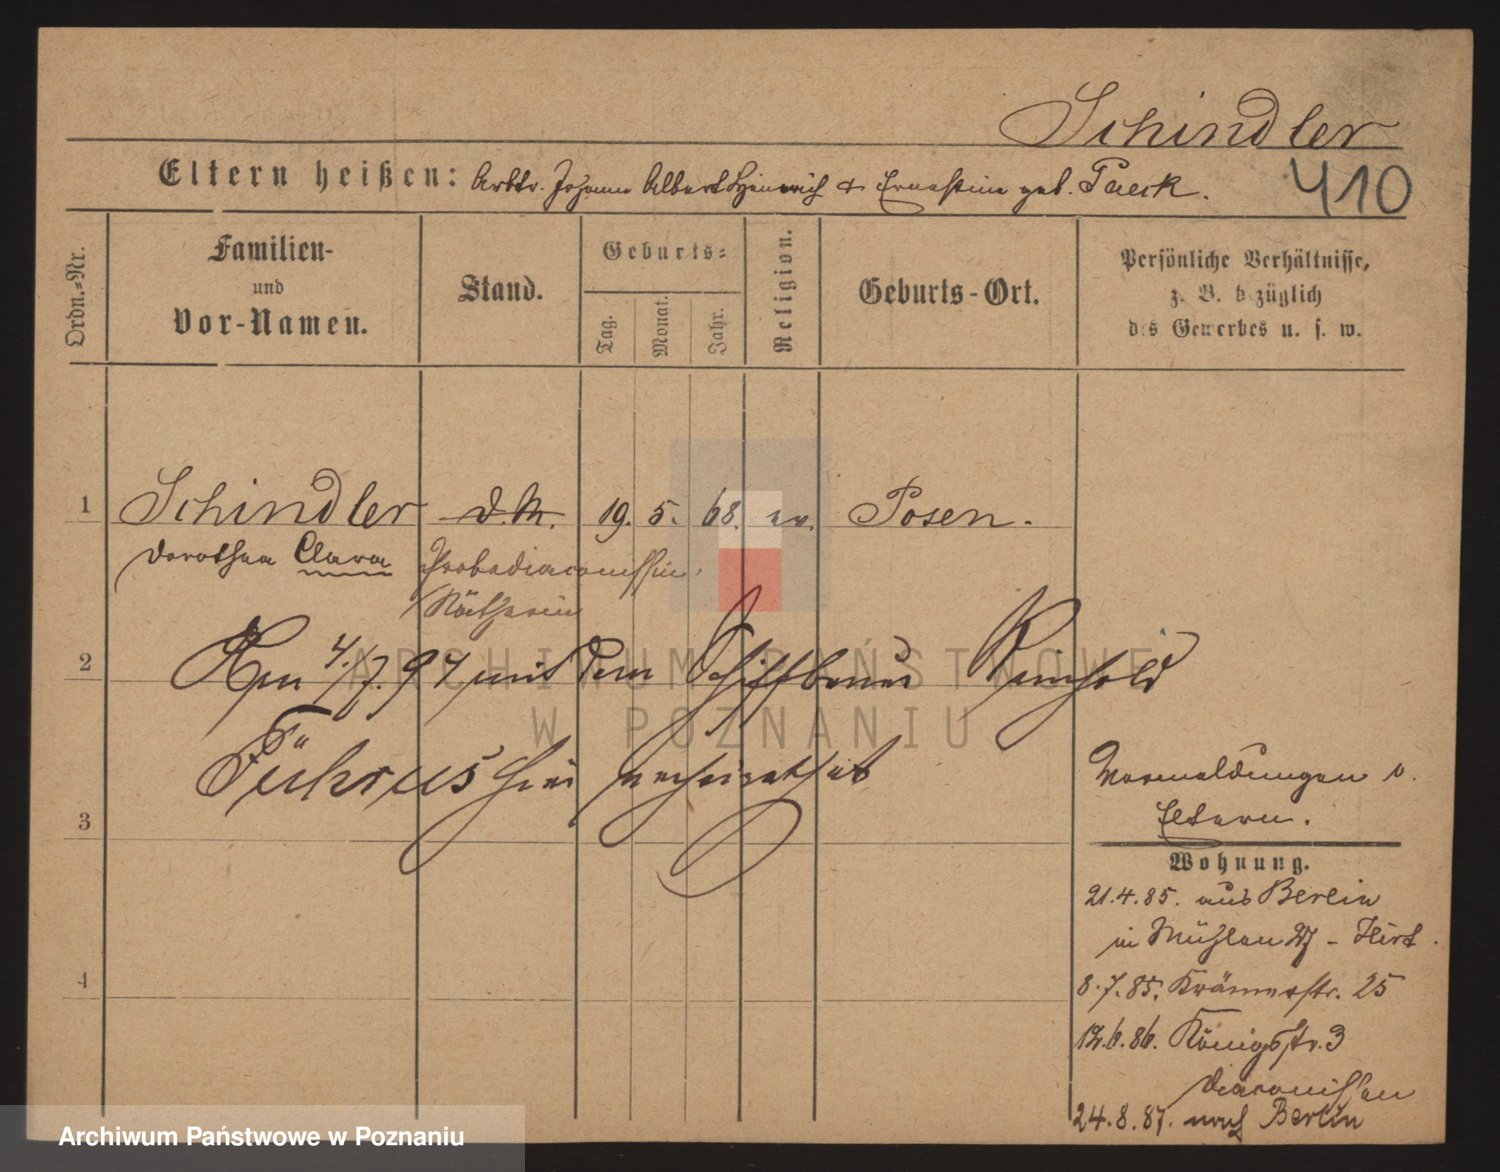 Schindler
Eltern heißen: Arbtr. Johann Albert Heinrich & Ernestine geb. Paeck.
410
Ordn.-Nr.
Familien-
und
Vor-Namen.
Stand.
Geburts-
Tag.
Monat.
Jahr.
Religion.
Geburts-Ort.
Persönliche Verhältnisse,
z. B. bezüglich
des Gewerbes u. s. w.
1 Schindler d. M. 19. 5. 68. ev. Posen.
Dorothea Clara Probediaconissin
Nätherin
2 Am 4./7. 94 mit dem Schiffbauer Reinhold
Führus hier verheirathet
3
4
Vormeldungen b.
Eltern.
Wohnung.
21.4.85. aus Berlin
in Mühlen - Hirt.
8.7.85. Krämerstr. 25
12.6.86. Königsstr. 3
Diaconissen
24.8.87. nach Berlin
ARCHIWUM PAŃSTWOWE
W POZNANIU
Archiwum Państwowe w Poznaniu